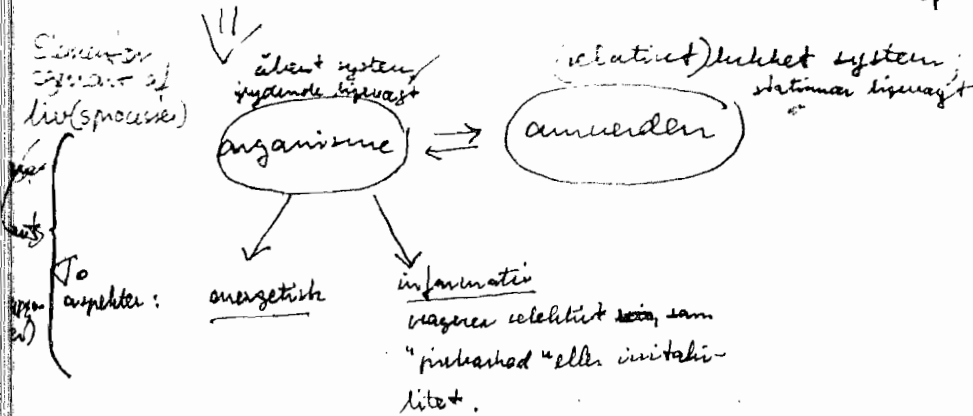 liv(sprocesser)
åbent system,
flydende ligevægt
organisme
(relativt) lukket system,
stationær ligevægt
omverden
To
aspekter:
energetisk
informativ
reagerer selektivt som
"pirbarhed" eller irritabi-
litet.